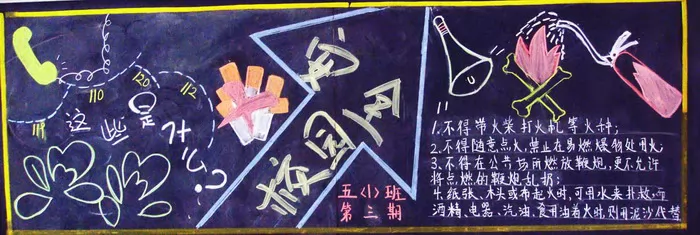 110
120
112
119
这些是什么?
校园安全
五(1)班
第三期
1.不得带火柴打火机等火种;
2.不得随意点火,禁止在易燃爆物处用火
3.不得在公共场所燃放鞭炮,更不允许
将点燃的鞭炮乱扔;
4.纸张、木头或布起火时,可用水来扑救,而
酒精、电器、汽油、食用油着火时,则用泥沙代替